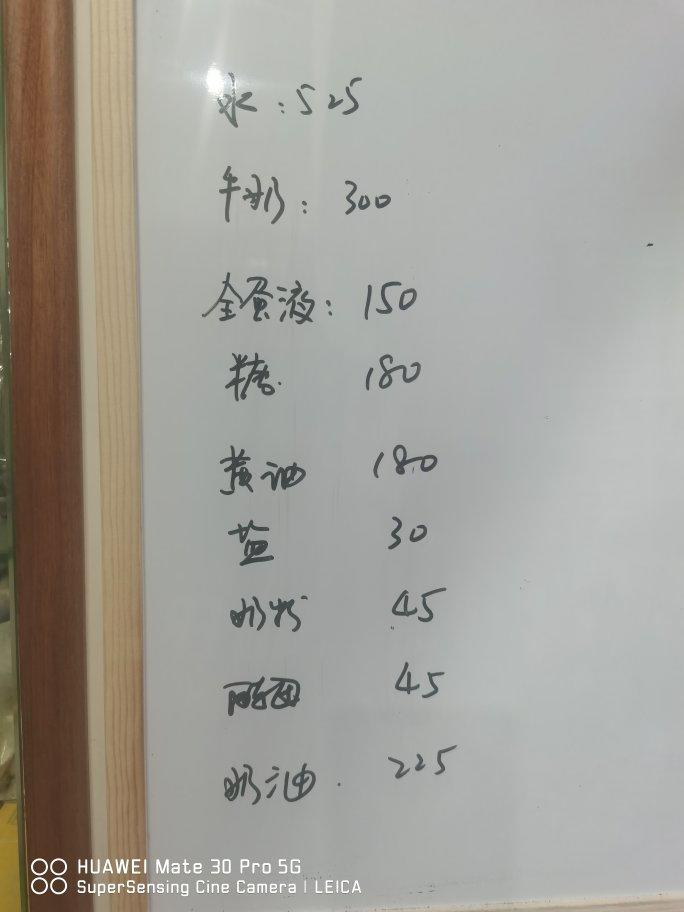 水：525
牛奶：300
全蛋液：150
糖. 180
黄油 180
盐 30
奶粉 45
酵母 45
奶油. 225
HUAWEI Mate 30 Pro 5G
SuperSensing Cine Camera | LEICA